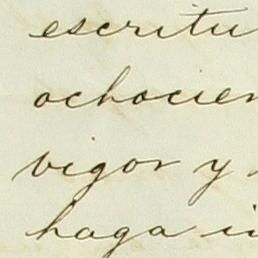 escritu
ochocien
vigor y
haga i